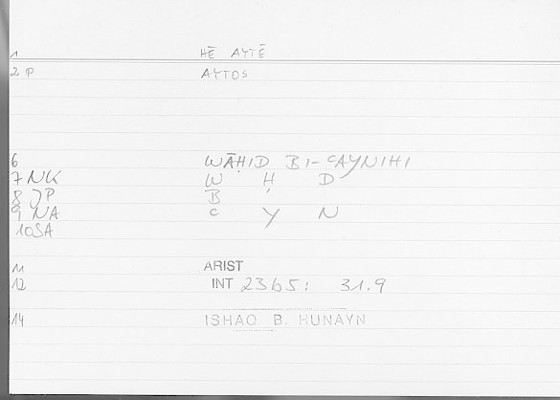 1 HĒ AYTĒ
2 P AYTOS
6 WĀḤID BI-CAYNIHI
7 NK W Ḥ D
8 JP B
9 NA C Y N
10 SA
11 ARIST
12 INT 2365: 31.9
14 ISHAQ B. HUNAYN